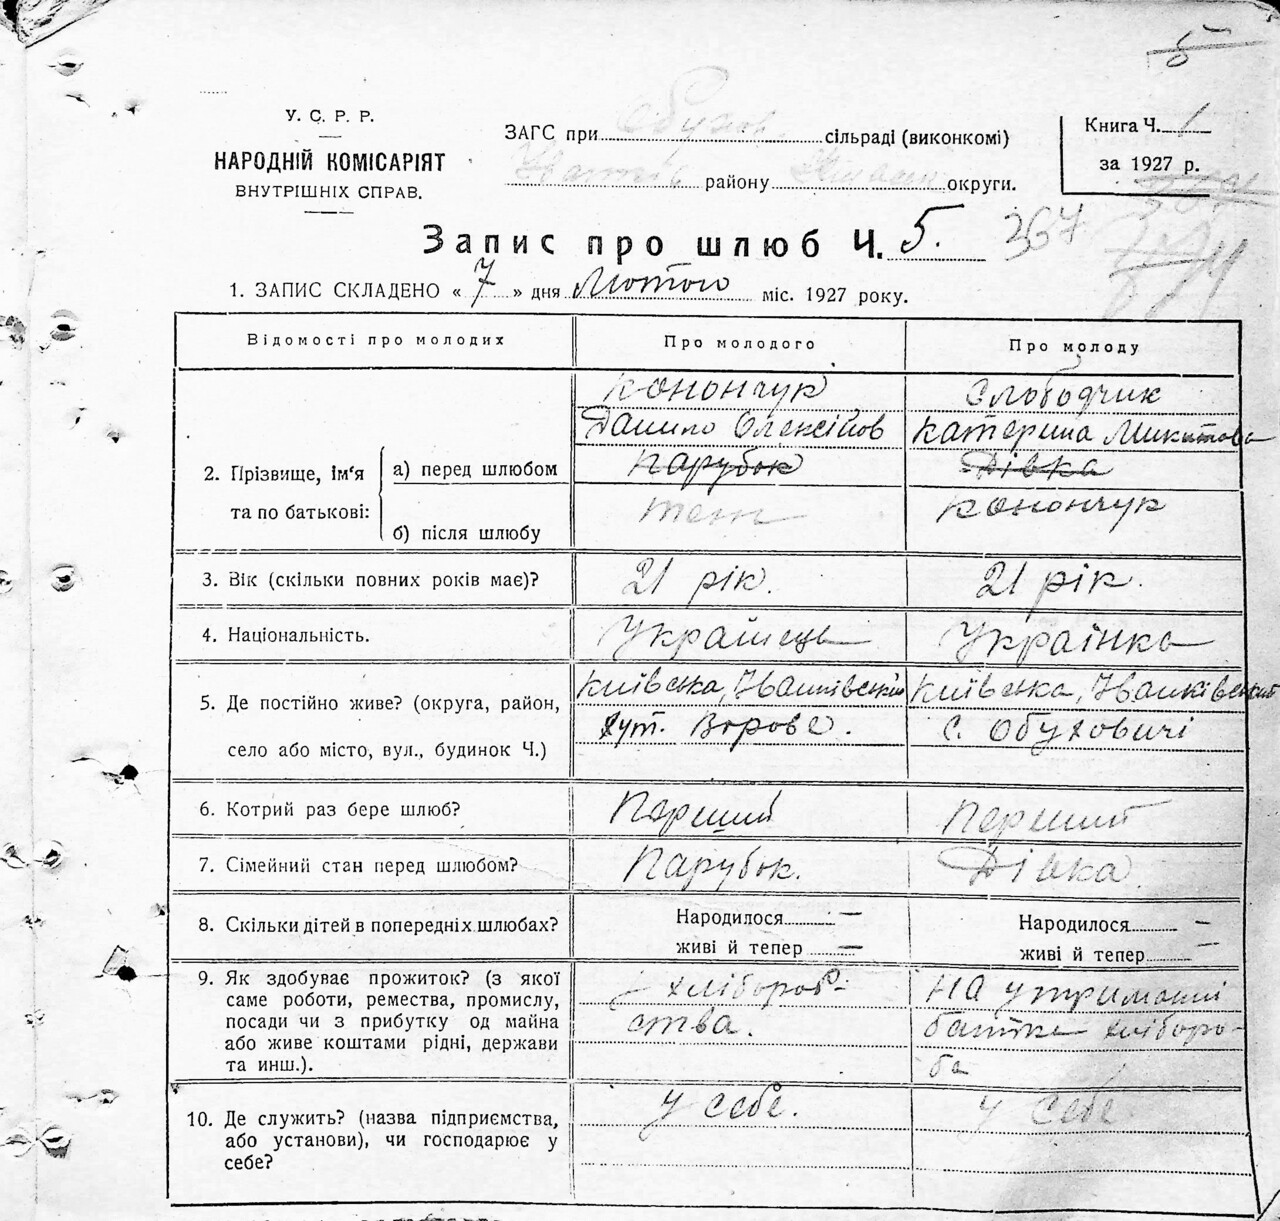 5
У. С. Р. Р.
НАРОДНІЙ КОМІСАРІЯТ
ВНУТРІШНІХ СПРАВ.
ЗАГС при Обухов. сільраді (виконкомі)
району округи.
Книга Ч. 1
за 1927 р.
Запис про шлюб Ч. 5. 367
1. ЗАПИС СКЛАДЕНО « 7 » дня Лютого міс. 1927 року.
Відомості про молодих Про молодого Про молоду
Конончук Слободчик
Данило Олексійов Катерина Микитова
2. Прізвище, ім'я та по батькові: а) перед шлюбом парубок Дівка
б) після шлюбу теж Конончук
3. Вік (скільки повних років має)? 21 рік. 21 рік.
4. Національність. Українець Українка
5. Де постійно живе? (округа, район, Київська, Іванківський Київська, Іванківський
село або місто, вул., будинок Ч.) хут. Ворове. с. Обуховичі
6. Котрий раз бере шлюб? Перший Перший
7. Сімейний стан перед шлюбом? Парубок. Дівка.
8. Скільки дітей в попередніх шлюбах? Народилося — Народилося —
живі й тепер — живі й тепер —
9. Як здобуває прожиток? (з якої з хлібороб- на утриманні
саме роботи, ремества, промислу,
посади чи з прибутку од майна ства. батька хліборо-
або живе коштами рідні, держави
та инш.). ба
10. Де служить? (назва підприємства, у себе. у себе
або установи), чи господарює у
себе?